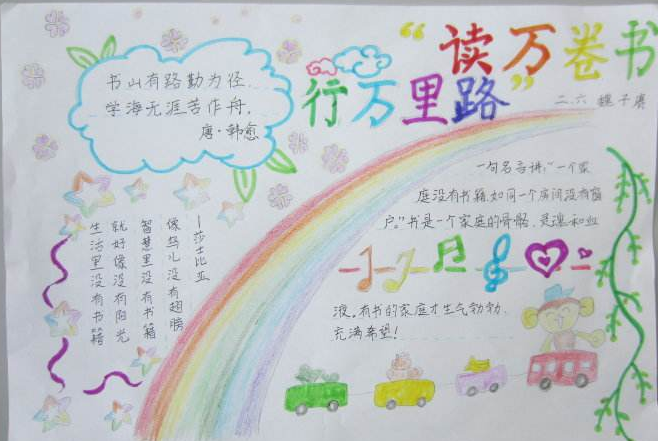 “读万卷书
行万里路”
二.六
书山有路勤为径,
学海无涯苦作舟。
唐·韩愈
生活里没有书籍
就好像没有阳光
智慧里没有书籍
像鸟儿没有翅膀
—莎士比亚
一句名言讲:“一个家
庭没有书籍,如同一个房间没有窗
户。”书是一个家庭的骨骼、灵魂和血
液。有书的家庭才生气勃勃,
充满希望!